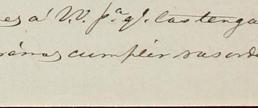 es á V. pª qᵉ. las tenga
cumplir sus orde